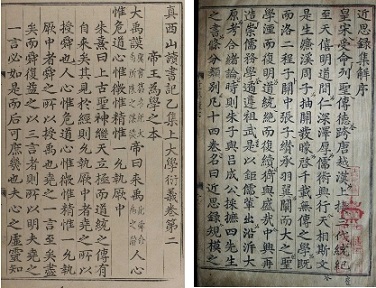 近思錄集解序
皇宋受命列聖傳德跨唐越漢上接三代統紀
至天禧明道間仁深澤厚儒術興行天相斯文
是生濂溪周子抽關發矇啓千載無傳之學既
而洛二程子關中張子纘承羽翼闡而大之聖
學湮而復明道統絕而復續猗歟盛哉中興再
造崇儒務學遹遵祖武是以鉅儒輩出沿泝大
原考合緒論時則朱子與呂成公採摭四先生
之書條分類別凡十四卷名曰近思錄規模之
真西山讀書記乙集上大學衍義卷第二
帝王為學之本
大禹謨 帝曰來禹 人心
惟危道心惟微惟精惟一允執厥中
朱熹曰上古聖神繼天立極而道統之傳有
自來矣其見於經則允執厥中者堯之所以
授舜也人心惟危道心惟微惟精惟一允執
厥中者舜之所以授禹也堯之一言至矣盡
矣而舜復益之以三言者則所以明夫堯之
一言必如是而后可庶幾也夫心之虛靈知